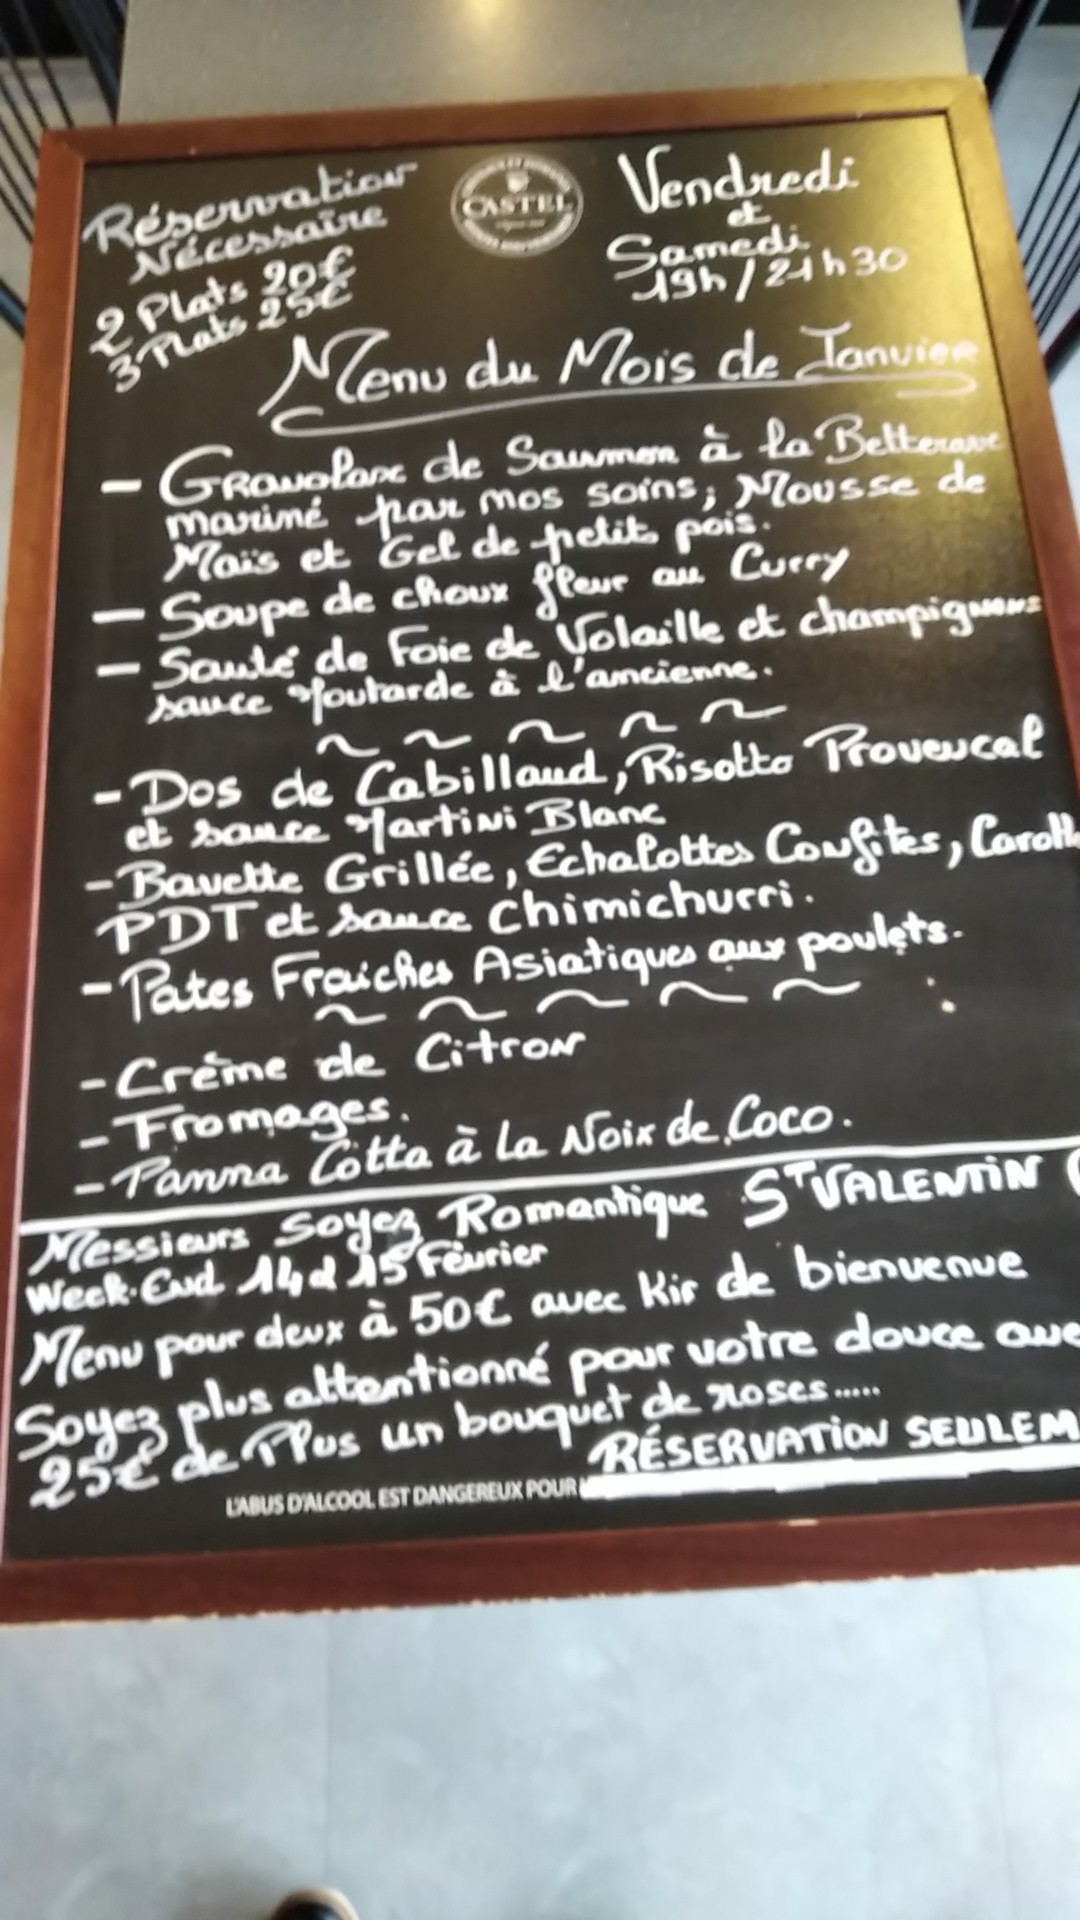 Réservation
Nécessaire
2 Plats 20€
3 Plats 25€
CASTEL
Vendredi
et
Samedi
19h/21h30
Menu du Mois de Janvier
- Gravolax de Saumon à la Betterave
mariné par nos soins; Mousse de
Maïs et Gel de petits pois.
- Soupe de choux fleur au Curry
- Sauté de Foie de Volaille et champignons
sauce Moutarde à l'ancienne.
~ ~ ~ ~ ~
- Dos de Cabillaud, Risotto Provencal
et sauce Martini Blanc
- Bavette Grillée, Echalottes Confites, Carott
PDT et sauce Chimichurri.
- Pates Fraiches Asiatiques aux poulets.
~ ~ ~ ~ ~
- Crème de Citron
- Fromages.
- Panna Cotta à la Noix de Coco.
Messieurs Soyez Romantique ST VALENTIN
Week-End 14 d 15 Février
Menu pour deux à 50€ avec Kir de bienvenue
Soyez plus attentionné pour votre douce ave
25€ de Plus un bouquet de roses.....
RÉSERVATION SEULEM
L'ABUS D'ALCOOL EST DANGEREUX POUR